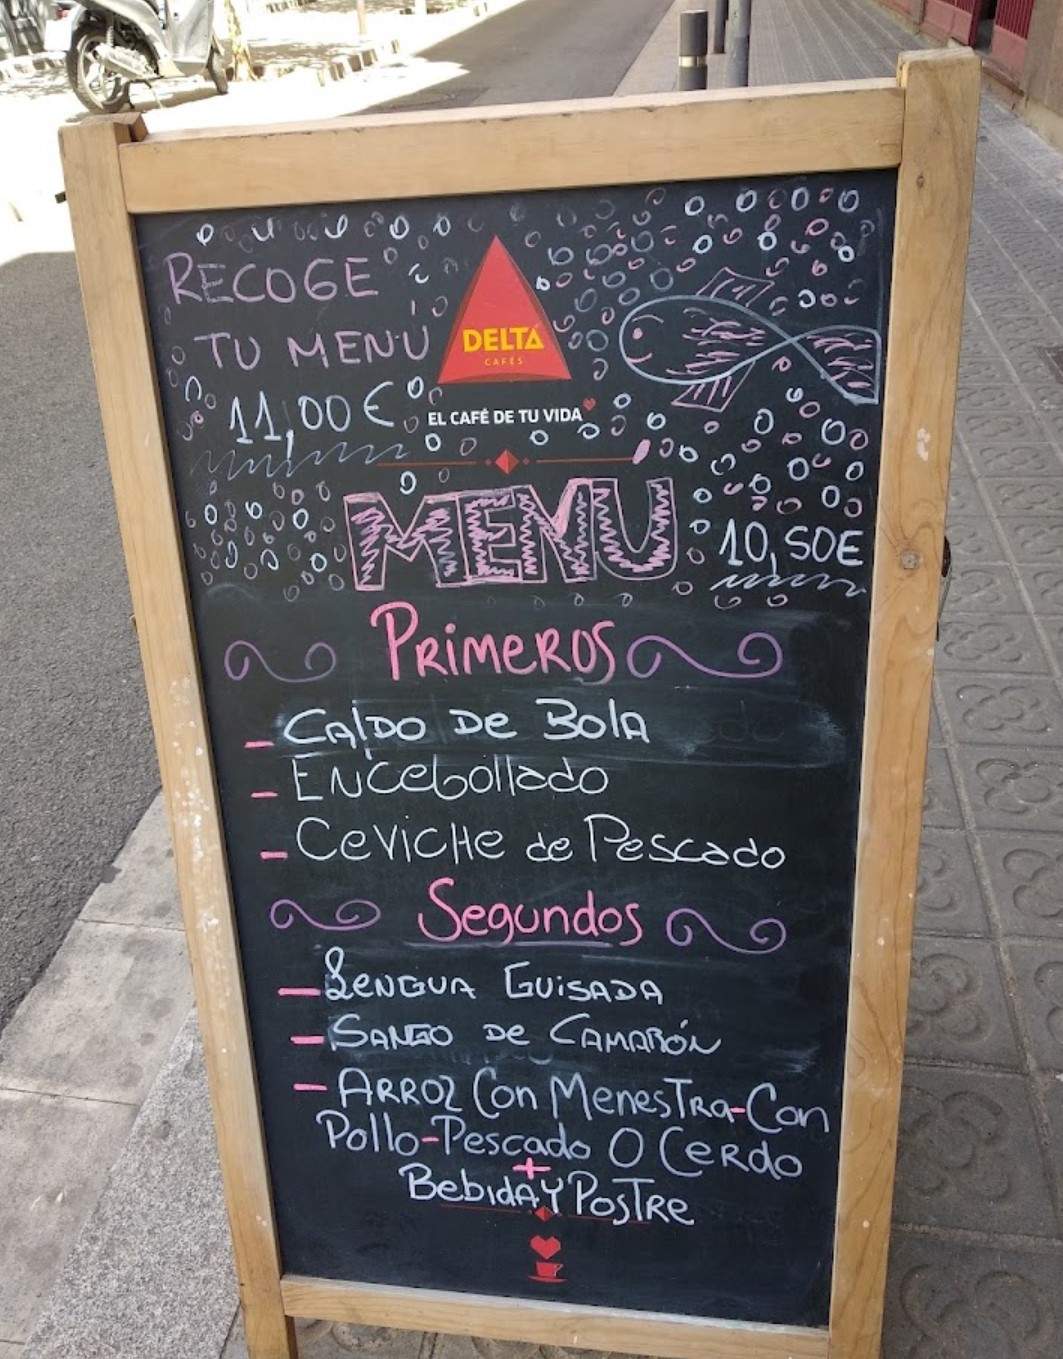 RECOGE
TU MENÚ
11,00 €
DELTA
CAFÉS
EL CAFÉ DE TU VIDA
MENU
10,50€
PRIMEROS
- CALDO DE BOLA
- ENCEBOLLADO
- CEVICHE de PESCADO
Segundos
- LENGUA GUISADA
- SANGO DE CAMARÓN
- ARROZ CON MENESTRA-CON
POLLO-PESCADO O CERDO
+
BEBIDA Y POSTRE